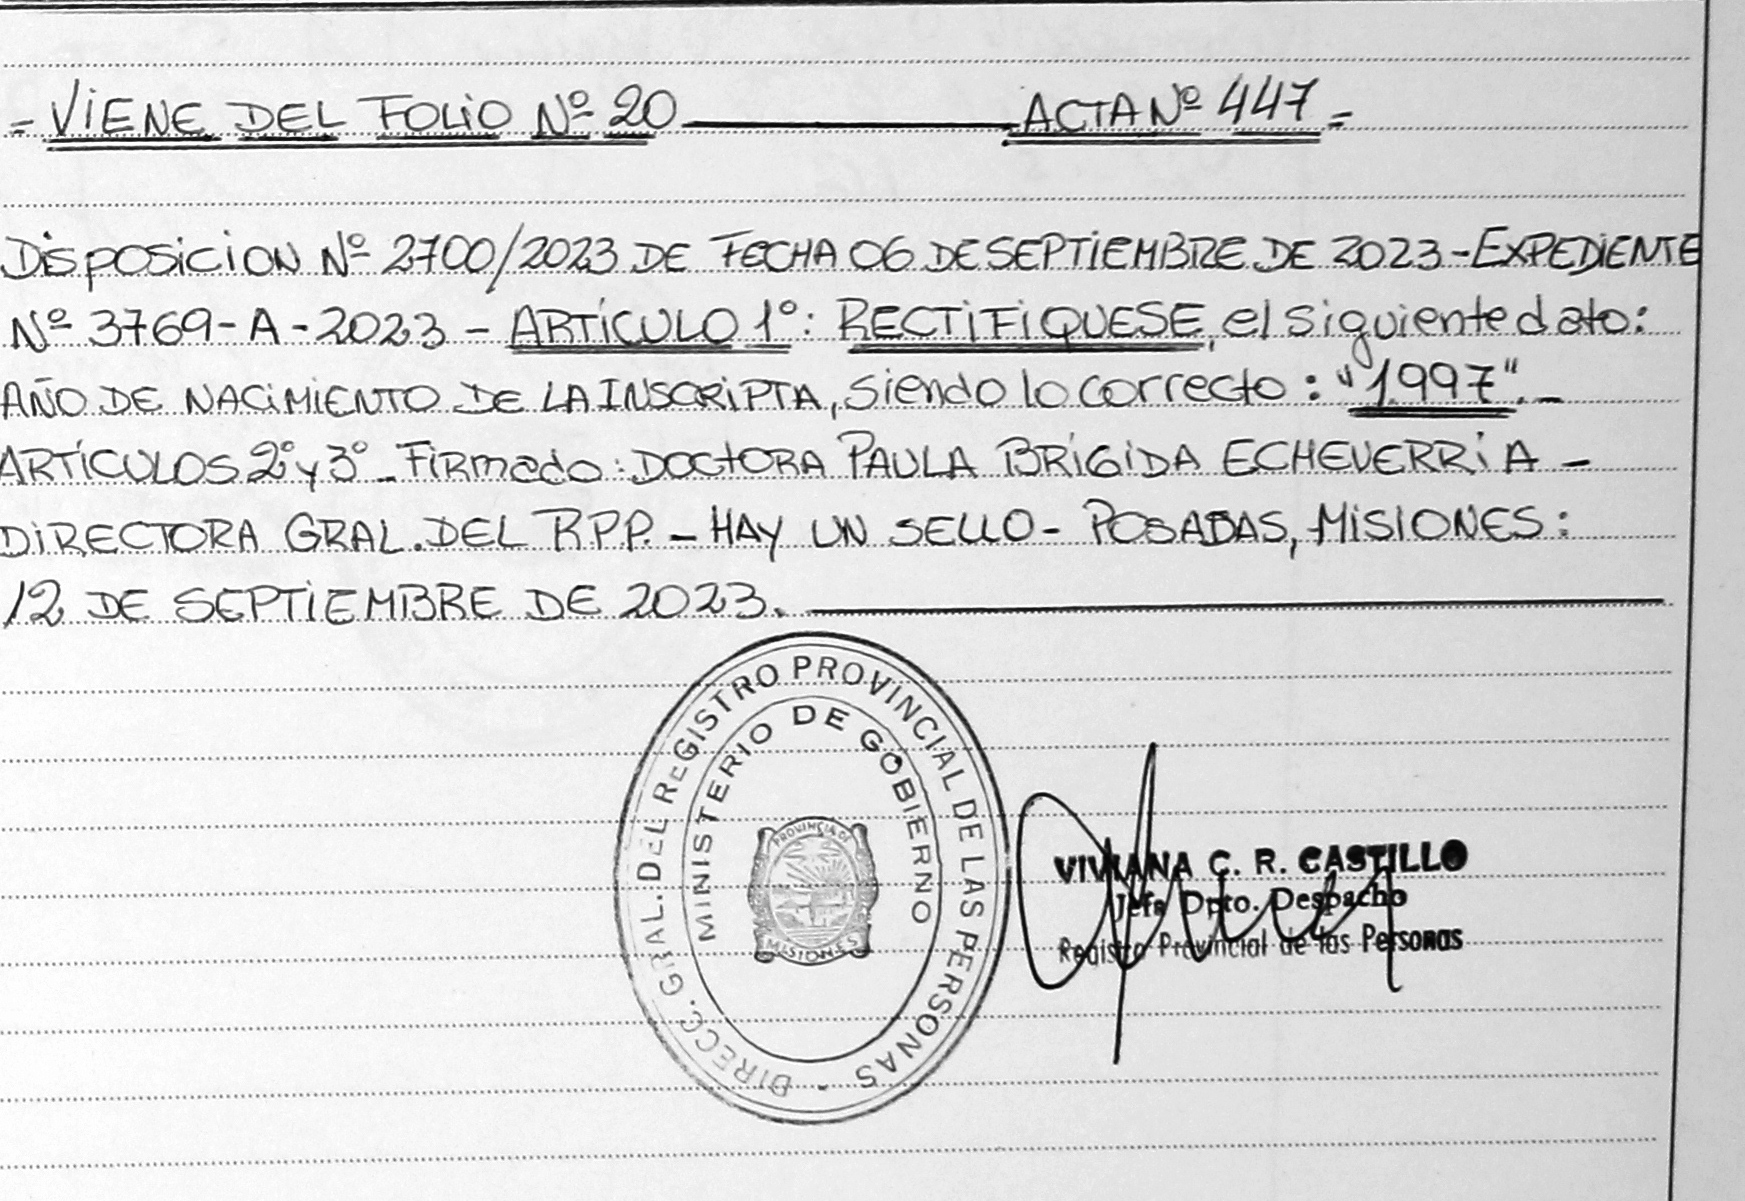 = VIENE DEL FOLIO Nº 20 ACTA Nº 447 =
DISPOSICION Nº 2700/2023 DE FECHA 06 DE SEPTIEMBRE DE 2023 - EXPEDIENTE
Nº 3769-A-2023 - ARTÍCULO 1º: RECTIFIQUESE, el siguiente dato:
AÑO DE NACIMIENTO DE LA INSCRIPTA, siendo lo correcto: "1997".-
ARTÍCULOS 2º y 3º - Firmado: DOCTORA PAULA BRÍGIDA ECHEVERRIA -
DIRECTORA GRAL. DEL R.P.P. - HAY UN SELLO - POSADAS, MISIONES:
12 DE SEPTIEMBRE DE 2023.
DIRECC. GRAL. DEL REGISTRO PROVINCIAL DE LAS PERSONAS
MINISTERIO DE GOBIERNO
PROVINCIA DE
MISIONES
VIVIANA C. R. CASTILLO
Jefa Dpto. Despacho
Registro Provincial de las Personas